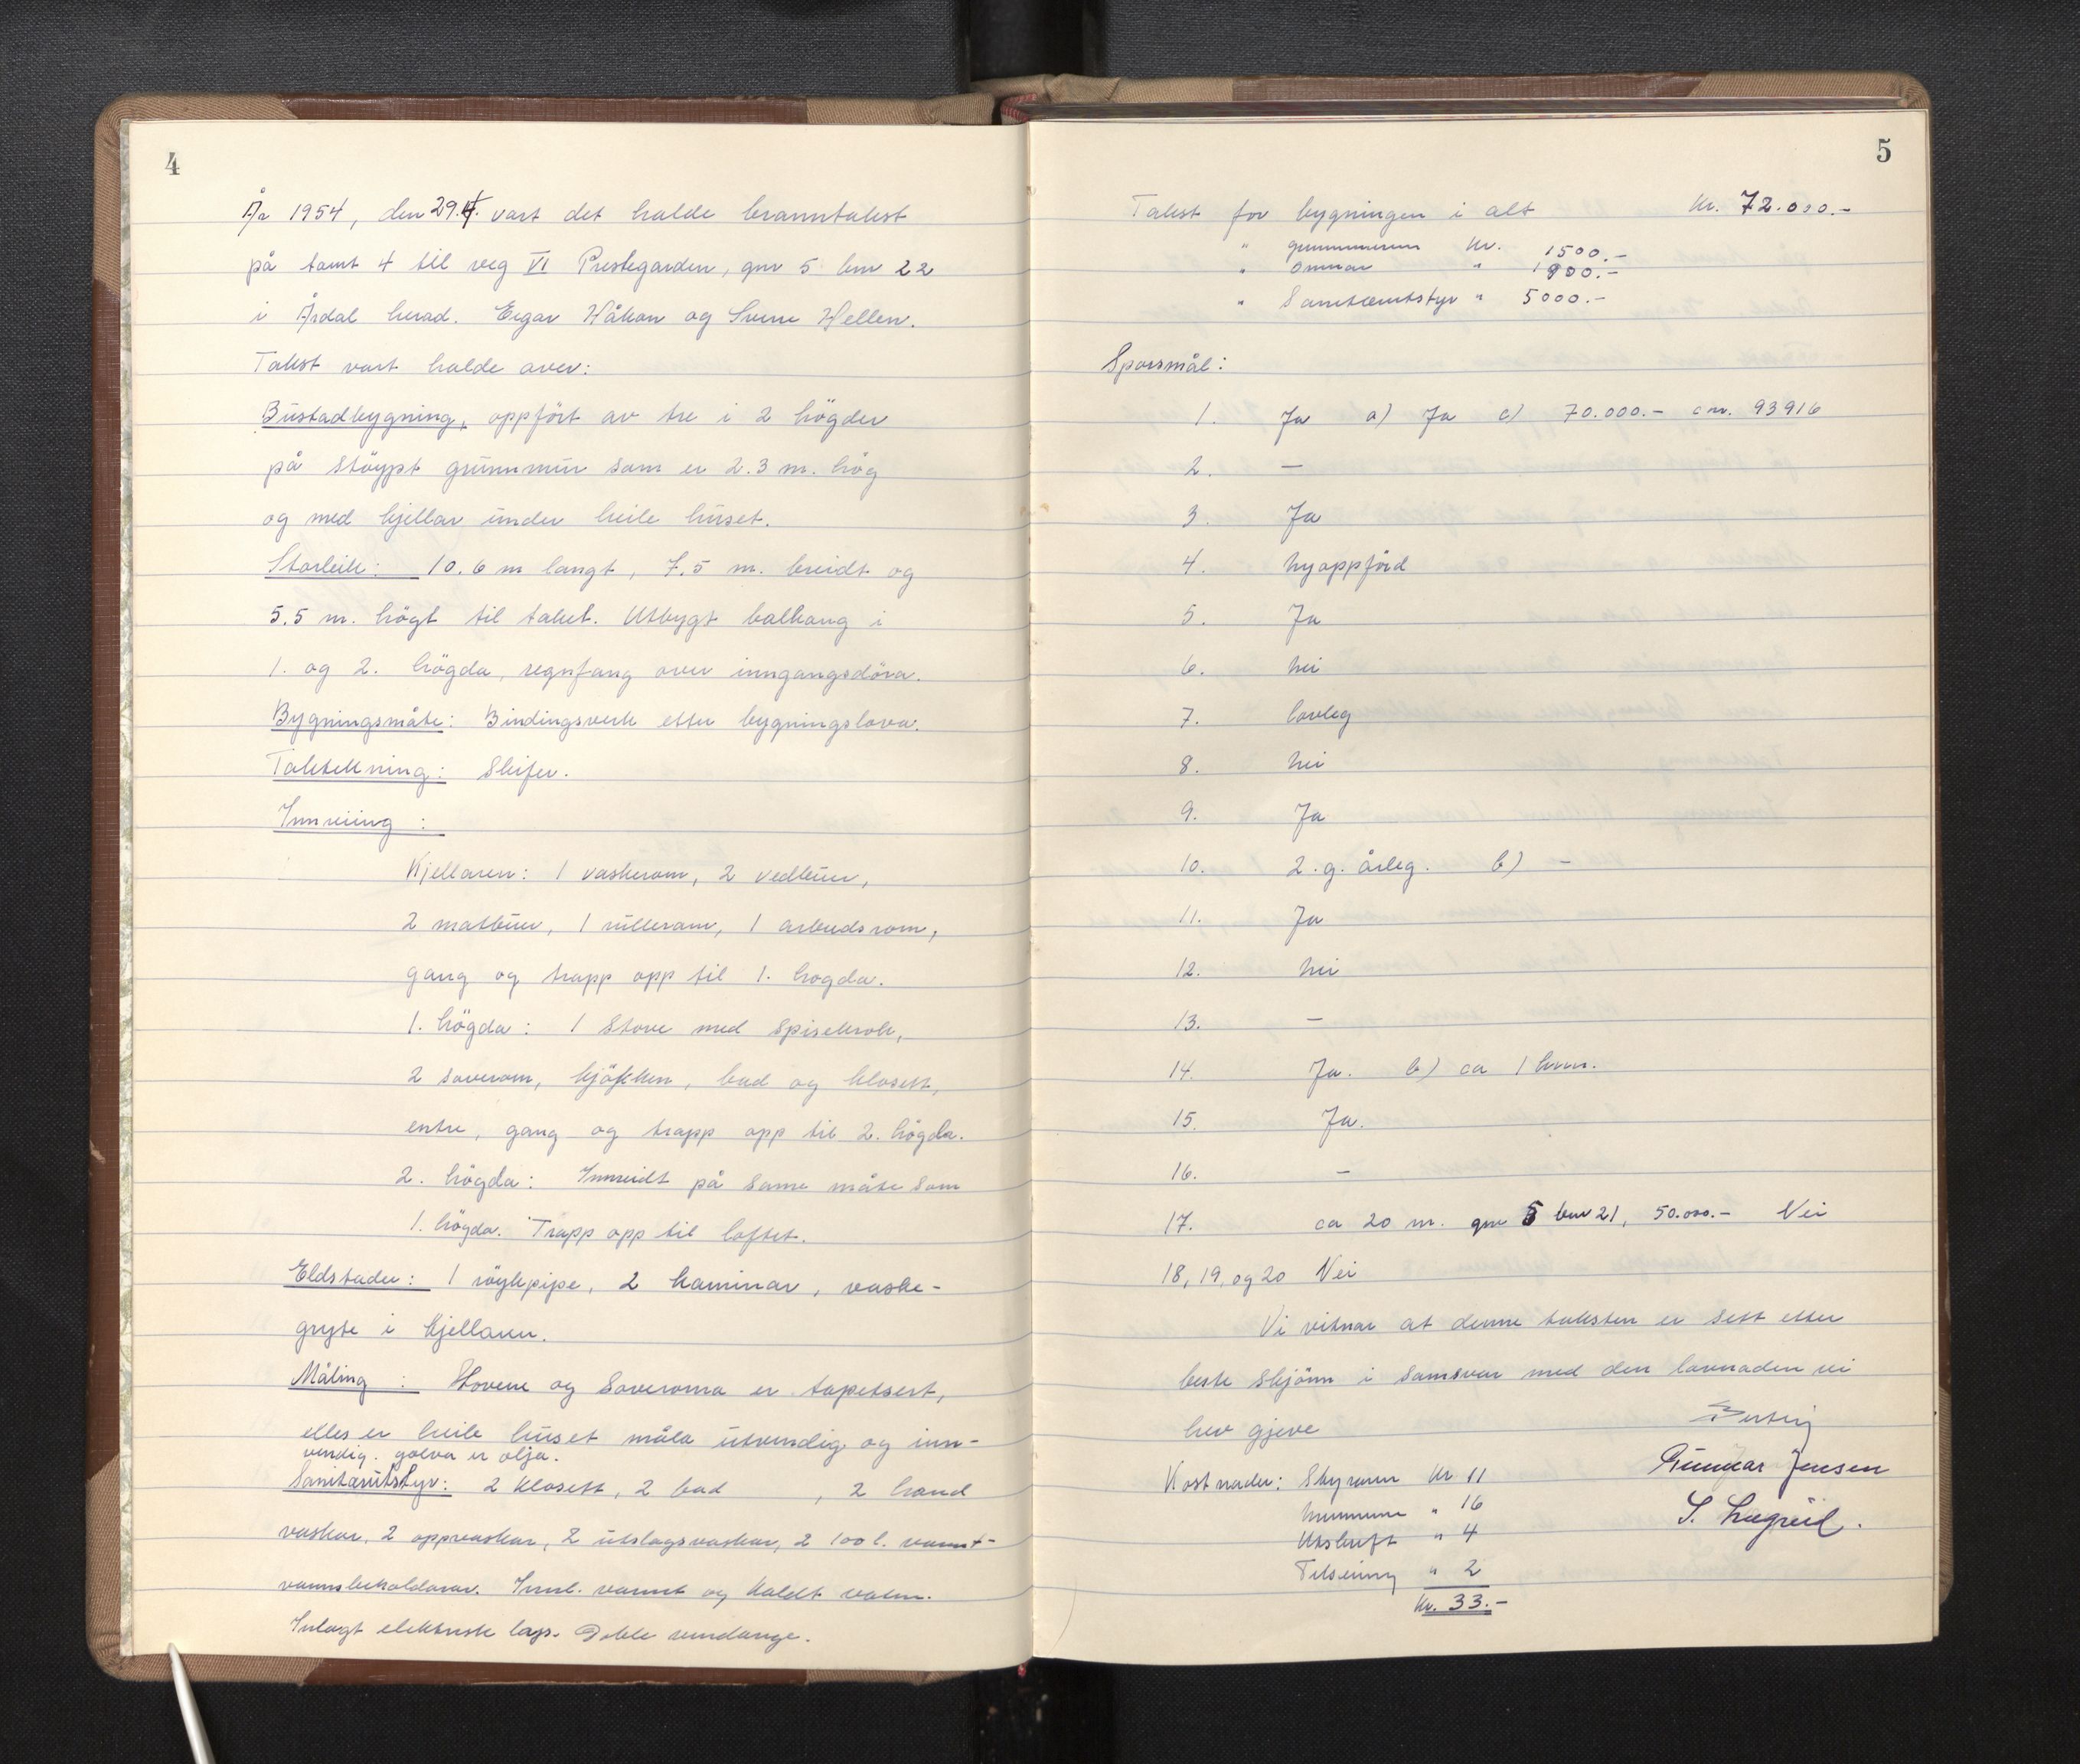 4
År 1954, den 29.4. vart det halde branntakst
på tomt 4 til veg VI Prestegarden, gnr 5 bnr 22
i Årdal herad. Eigar Håkon og Sverre Hellen.
Takst vart halde over:
Bustadbygning, oppfört av tre i 2 högder
på stöypt grunnmur som er 2.3 m. hög
og med kjellar under heile huset.
Storleik: 10.6 m langt, 7.5 m. breidt og
5.5 m. högt til taket. Utbygt balkong i
1. og 2. högda, regnfang over inngangsdöra.
Bygningsmåte: Bindingsverk etter bygningslova.
Taktekkning: Skifer.
Innreiing:
Kjellaren: 1 vaskerom, 2 vedbuer,
2 matbuer, 1 rullerom, 1 arbeidsrom,
gang og trapp opp til 1. hogda.
1. högda: 1 stove med spisekrok,
2 soverom, kjökken, bad og klosett,
entre, gang og trapp opp til 2. högda.
2. högda: Innreidt på same måte som
1. högda. Trapp opp til loftet.
Eldstader: 1 röykpipe, 2 kaminar, vaske-
gryte i kjellaren.
Måling: Stovene og soveroma er tapetsert,
elles er heile huset måla utvendig og inn-
vendig. golva er olja.
Sanitærutstyr: 2 klosett, 2 bad, 2 hand
vaskar, 2 oppvaskar, 2 utslagsvaskar, 2 100 l. varmt-
vannsbeholdarar. Innl. varmt og kaldt vatn.
Inlagt elektrisk lays. Doble vindauge.
5
Takst for bygningen i alt kr. 72.000.-
" grunnmuren kr. 1500.-
" omnar " 1900.-
" Sanitærutstyr " 5000.-
Sporsmål:
1. Ja a) Ja c) 70.000.- nr. 93916
2. –
3. Ja
4. Nyoppförd
5. Ja
6. Nei
7. lovleg
8. Nei
9. Ja
10. 2. g. årleg. b) –
11. Ja
12. Nei
13. –
14. Ja. b) ca 1 km.
15. Ja.
16. –
17. ca 20 m. gnr 5 bnr 21, 50.000.- Nei
18, 19, og 20 Nei
Vi vitnar at denne taksten er sett etter
beste skjönn i samsvar med den lovnaden vi
hev gjeve
Gunnar Jensen
S. Lægreid.
Kostnader: Skyraren kr 11
Mennene " 16
Utskrift " 4
Tilseiing " 2
kr. 33.-